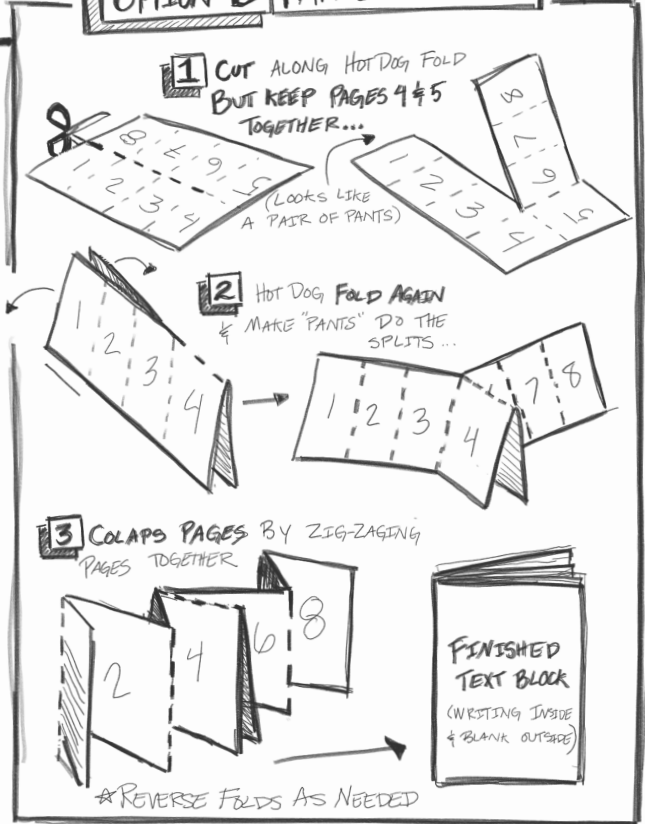 OPTION
1 CUT ALONG HOTDOG FOLD
BUT KEEP PAGES 4 & 5
TOGETHER...
8 7 6 5
1 2 3 4
(LOOKS LIKE
A PAIR OF PANTS)
8
7
6
1 2 3 4 5
2 HOT DOG FOLD AGAIN
& MAKE "PANTS" DO THE
SPLITS...
1 2 3 4
1 2 3 4 7 8
3 COLAPS PAGES BY ZIG-ZAGING
PAGES TOGETHER
2 4 6 8
FINISHED
TEXT BLOCK
(WRITING INSIDE
& BLANK OUTSIDE)
☆REVERSE FOLDS AS NEEDED